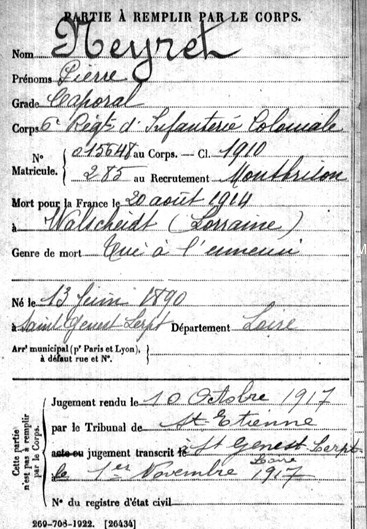 PARTIE À REMPLIR PAR LE CORPS.
Nom Neyret
Prénoms Pierre
Grade Caporal
Corps 6e Régt d'Infanterie Coloniale
N° Matricule. { 015648 au Corps. — Cl. 1910
285 au Recrutement Montbrison
Mort pour la France le 20 août 1914
à Walscheidt (Lorraine)
Genre de mort Tué à l'ennemi
Né le 13 Juin 1890
à Saint Genest Lerpt Département Loire
Arrt municipal (pr Paris et Lyon), à défaut rue et N°.
Cette partie n'est pas à remplir par le Corps.
Jugement rendu le 10 Octobre 1917
par le Tribunal de St-Etienne
acte ou jugement transcrit le à St Genest Lerpt
Loire
le 1er Novembre 1917
N° du registre d'état civil
269-708-1922. [26434]